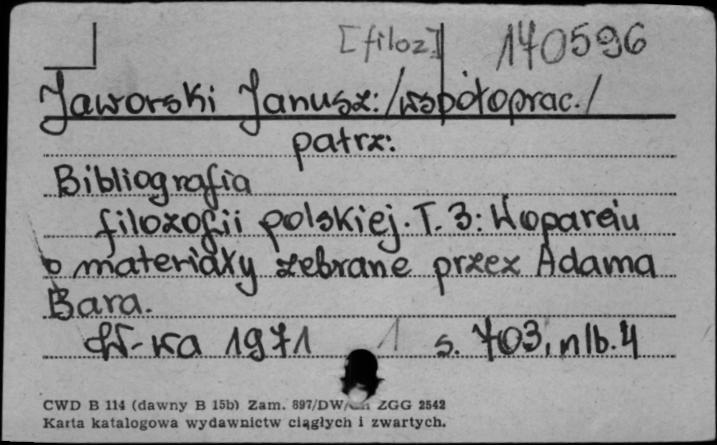 [filoz] 140596
Jaworski Janusz: /współoprac./
patrz:
Bibliografia
filozofii polskiej. T. 3: W oparciu
o materiały zebrane przez Adama
Bara.
W-wa 1971 1 s. 703, nlb. 4
CWD B 114 (dawny B 15b) Zam. 897/DW/ ZGG 2542
Karta katalogowa wydawnictw ciągłych i zwartych.